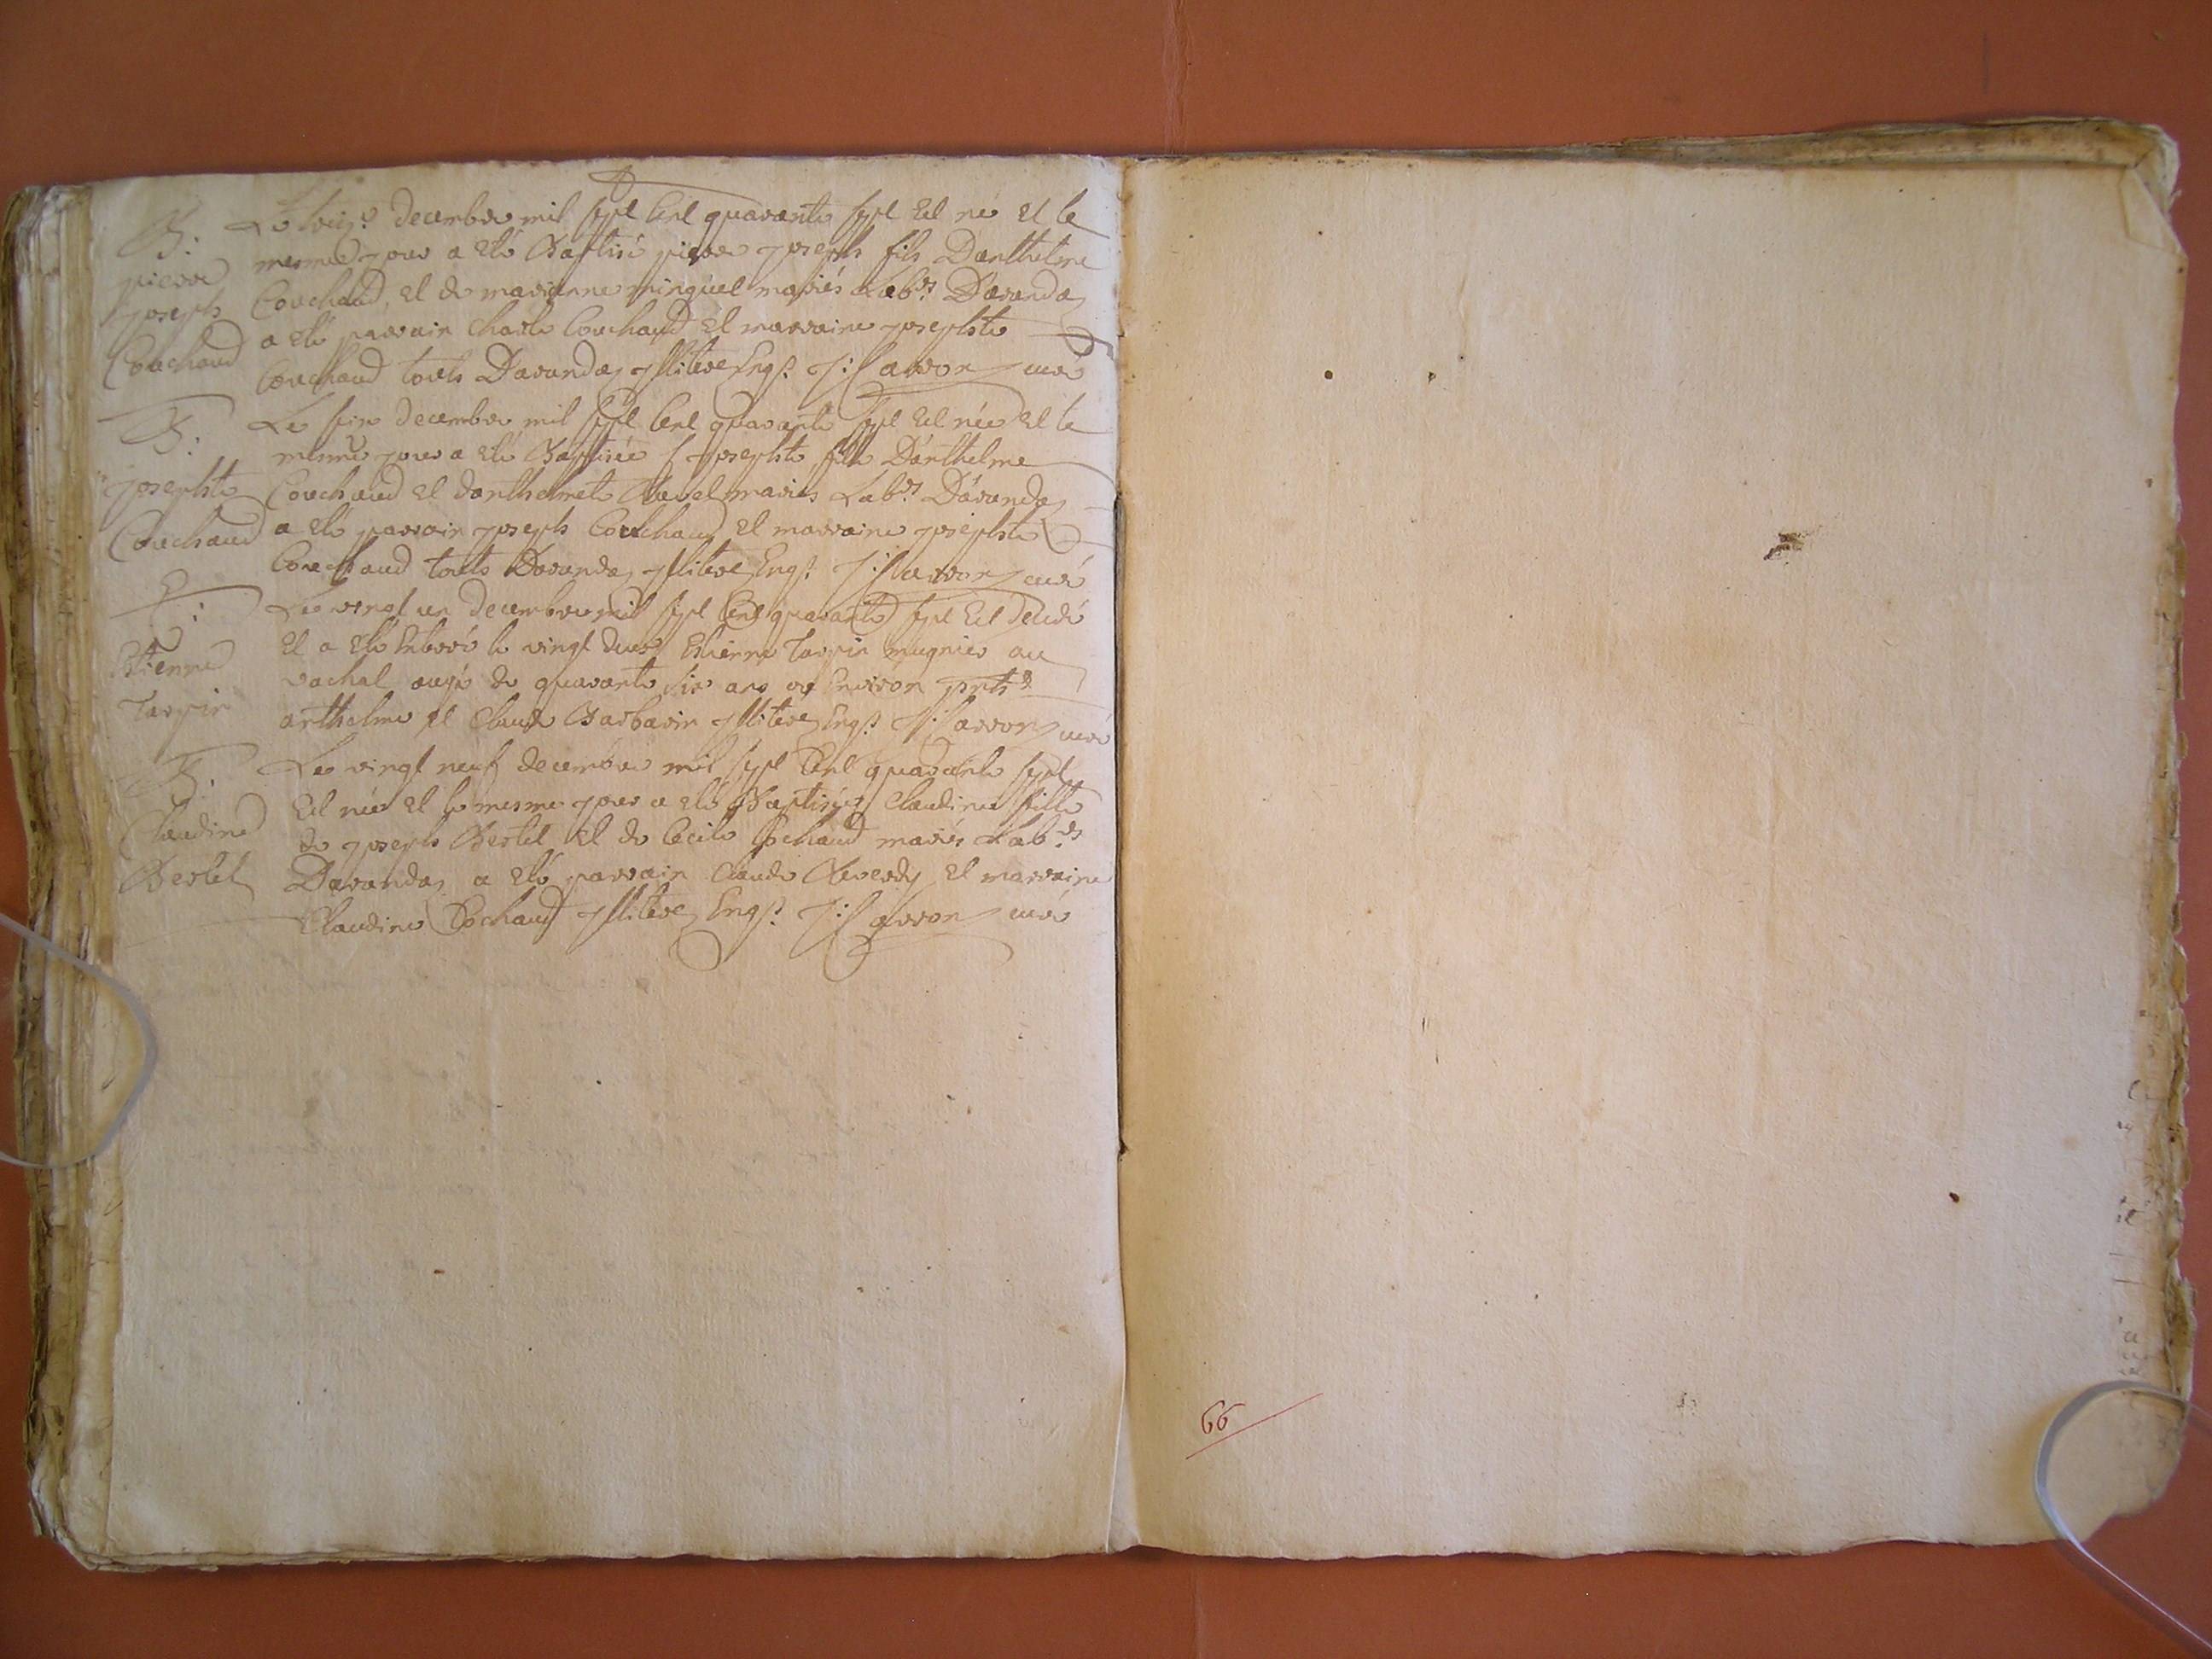 B.
pierre
joseph
Couchoud
Le decembre mil sept cent quarante sept est né et le
mesme jour a esté Baptisé pierre joseph fils Danthelme
Couchoud et de marianne minguet mariés Lab.rs Davanda
a esté parrain Charle Couchoud et marraine josephte
Couchoud touts Davanda illiterez Enq.s J: Carron curé
B.
josephte
Couchoud
Le decembre mil sept cent quarante sept est née et le
mesme jour a esté Baptisée josephte fille Danthelme
Couchoud et danthelmete mariés Lab.rs Davanda
a esté parrain joseph Couchoud et marraine josephte
Couchoud touts Davanda illiterez Enq.s J: Carron curé
Etienne
Tarpin
Le vingt un decembre mil sept cent quarante sept est decedé
et a esté Enterré le vingt deux Etienne Tarpin mugnier au
vachat augé de quarante six ans ou Environ pnts
anthelme et Claude Barbarin illiterez Enq.s J: Carron curé
B.
Claudine
Bertet
Le vingt neuf decembre mil sept cent quarante sept
est née et le mesme jour a esté Baptisée Claudine fille
de joseph Bertet et de Cecile Cochaud mariés Lab.rs
Davanda a esté parrain Claude et marraine
Claudine Cochaud illiterez Enq.s J: Carron curé
66